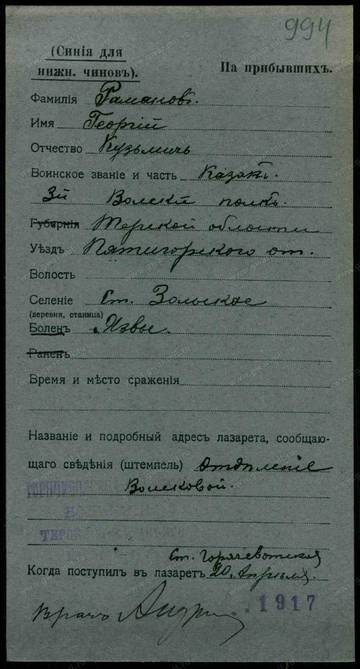 994
(Синія для
нижн. чиновъ).
На прибывшихъ.
Фамилія Рамановъ.
Имя Георгій
Отчество Кузьмичъ
Воинское званіе и часть Казакъ.
3й Волскій полкъ.
Губернія Терской области
Уѣздъ Пятигорского от.
Волость
Селеніе Ст. Зольское
(деревня, станица)
Боленъ Язвы.
Раненъ
Время и мѣсто сраженія
Названіе и подробный адресъ лазарета, сообщаю-
щаго свѣдѣнія (штемпель) Отдѣленіе
Волсковой.
ст. Горячеводская
Когда поступилъ въ лазаретъ 20, Апрѣля.
1917
Врачъ